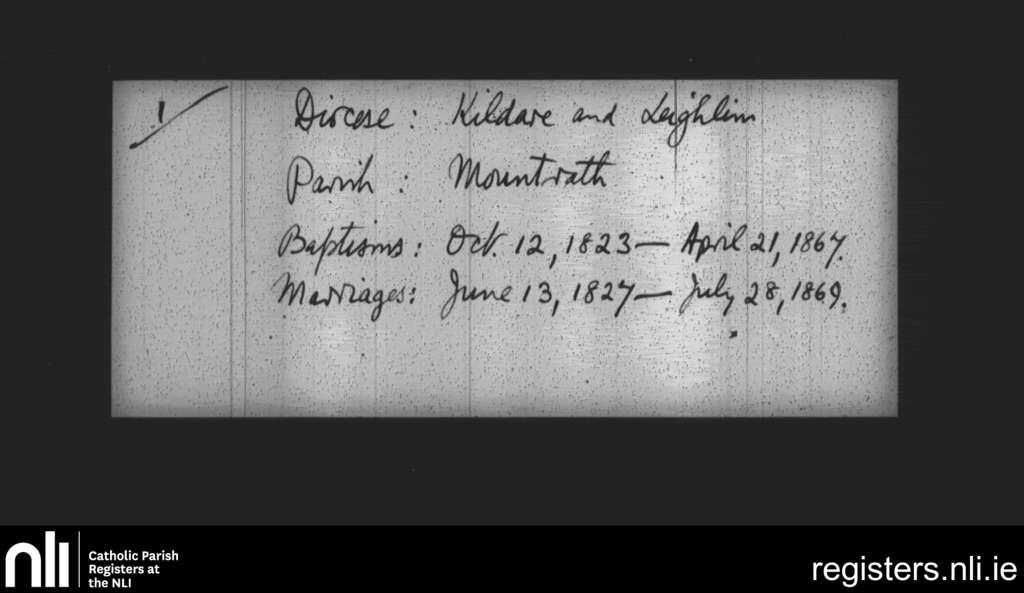 1/
Diocese: Kildare and Leighlin
Parish: Mountrath
Baptisms: Oct. 12, 1823 — April 21, 1867.
Marriages: June 13, 1827 — July 28, 1869.
nli
Catholic Parish
Registers at
the NLI
registers.nli.ie